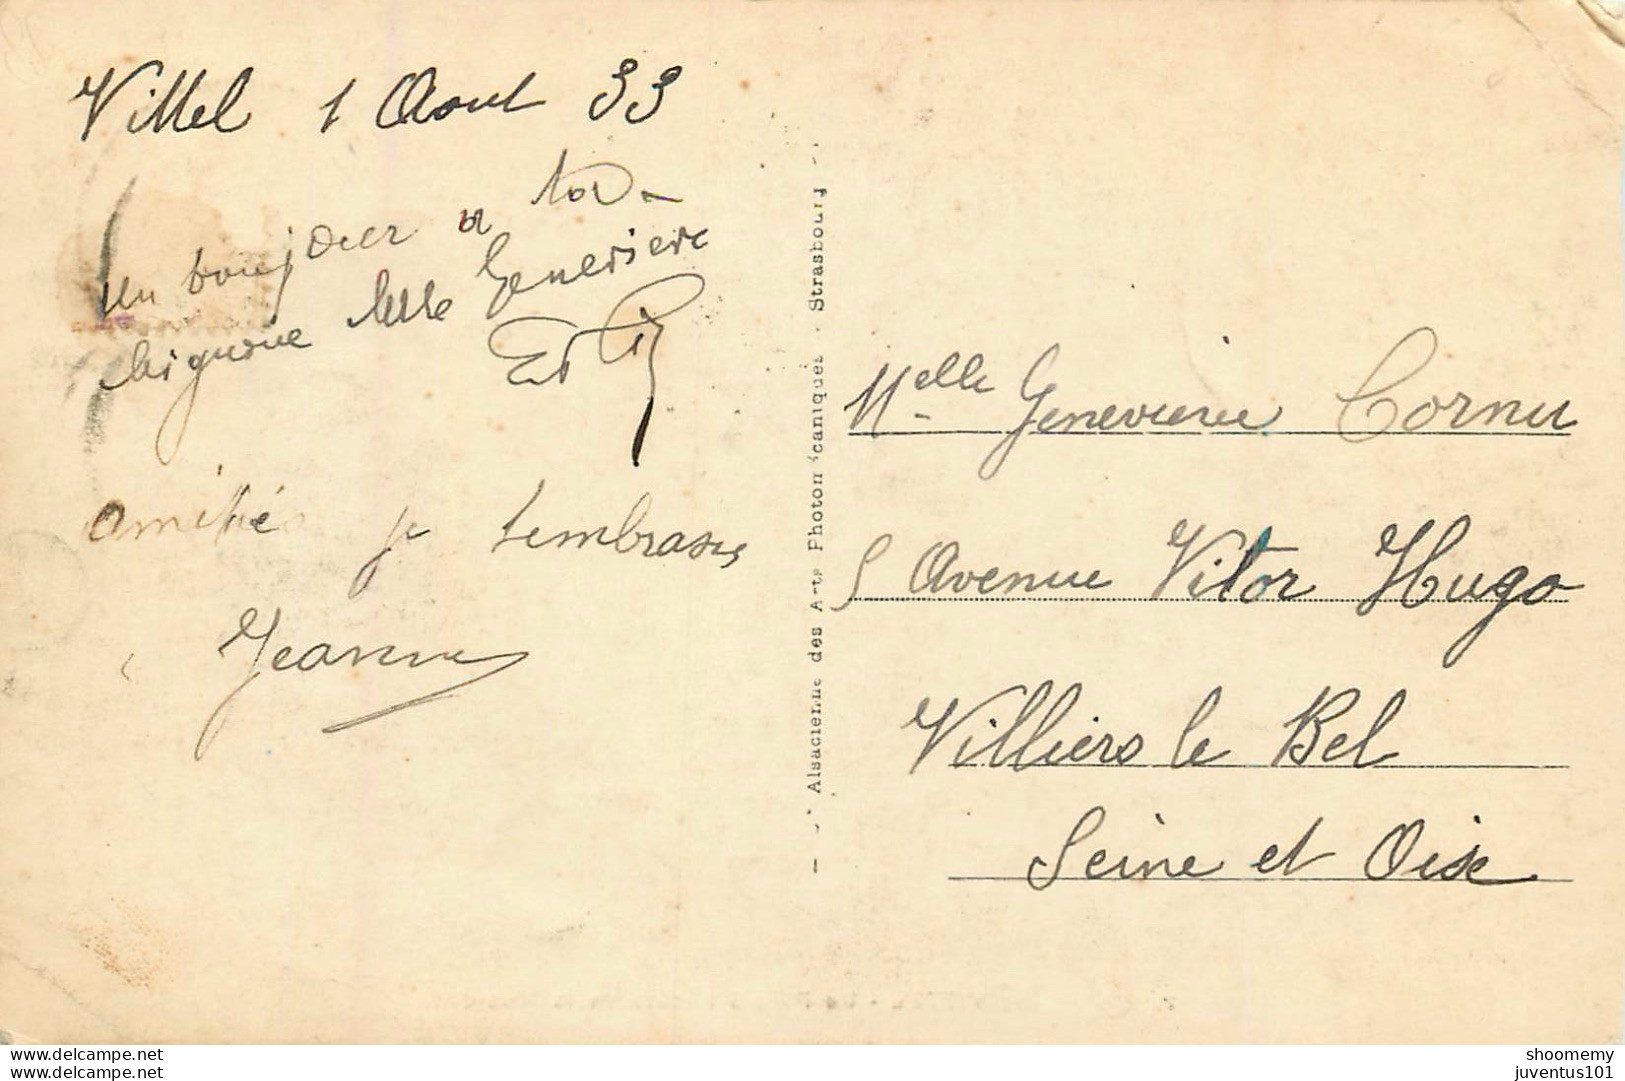 Vittel 1 Aout 33
un bonjour a toi
mignonne belle Genevieve
amitié je t'embrasse
Jeanne
Alsacienne des Arts Photomécaniques - Strasbourg
Melle Genevieve Cornu
5 Avenue Vitor Hugo
Villiers le Bel
Seine et Oise
www.delcampe.com
www.delcampe.com
shoomemy
juventus101